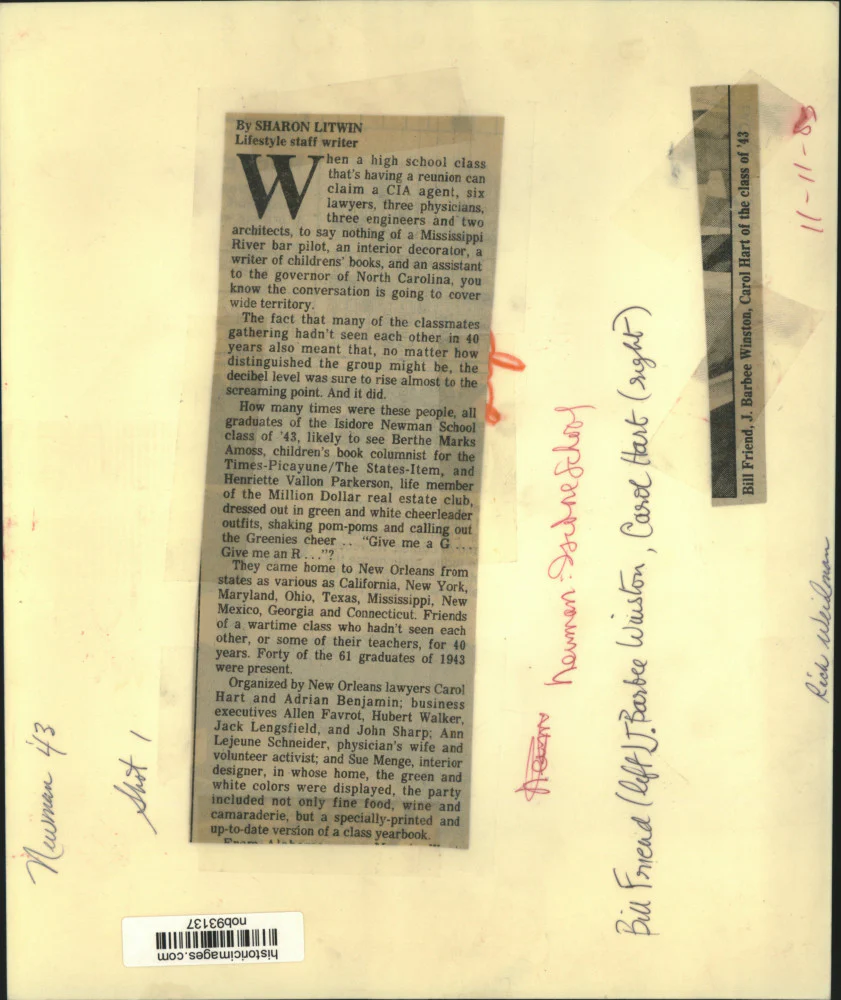 By SHARON LITWIN
Lifestyle staff writer
When a high school class
that's having a reunion can
claim a CIA agent, six
lawyers, three physicians,
three engineers and two
architects, to say nothing of a Mississippi
River bar pilot, an interior decorator, a
writer of childrens' books, and an assistant
to the governor of North Carolina, you
know the conversation is going to cover
wide territory.
The fact that many of the classmates
gathering hadn't seen each other in 40
years also meant that, no matter how
distinguished the group might be, the
decibel level was sure to rise almost to the
screaming point. And it did.
How many times were these people, all
graduates of the Isidore Newman School
class of '43, likely to see Berthe Marks
Amoss, children's book columnist for the
Times-Picayune/The States-Item, and
Henriette Vallon Parkerson, life member
of the Million Dollar real estate club,
dressed out in green and white cheerleader
outfits, shaking pom-poms and calling out
the Greenies cheer .. "Give me a G ...
Give me an R ..."?
They came home to New Orleans from
states as various as California, New York,
Maryland, Ohio, Texas, Mississippi, New
Mexico, Georgia and Connecticut. Friends
of a wartime class who hadn't seen each
other, or some of their teachers, for 40
years. Forty of the 61 graduates of 1943
were present.
Organized by New Orleans lawyers Carol
Hart and Adrian Benjamin; business
executives Allen Favrot, Hubert Walker,
Jack Lengsfield, and John Sharp; Ann
Lejeune Schneider, physician's wife and
volunteer activist; and Sue Menge, interior
designer, in whose home, the green and
white colors were displayed, the party
included not only fine food, wine and
camaraderie, but a specially-printed and
up-to-date version of a class yearbook.
Bill Friend, J. Barbee Winston, Carol Hart of the class of '43
11-11-83
Newman - Isidore School
Bill Friend (left) J. Barbee Winston, Carol Hart (right)
Rich Weidman
Newman '43
Shot 1
historicimages.com
nob93137